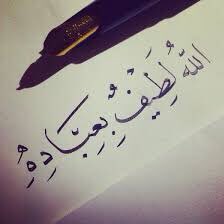 اللهُ لَطِيفٌ بِعِبَادِهِ